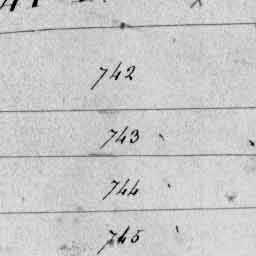 742
743
744
745